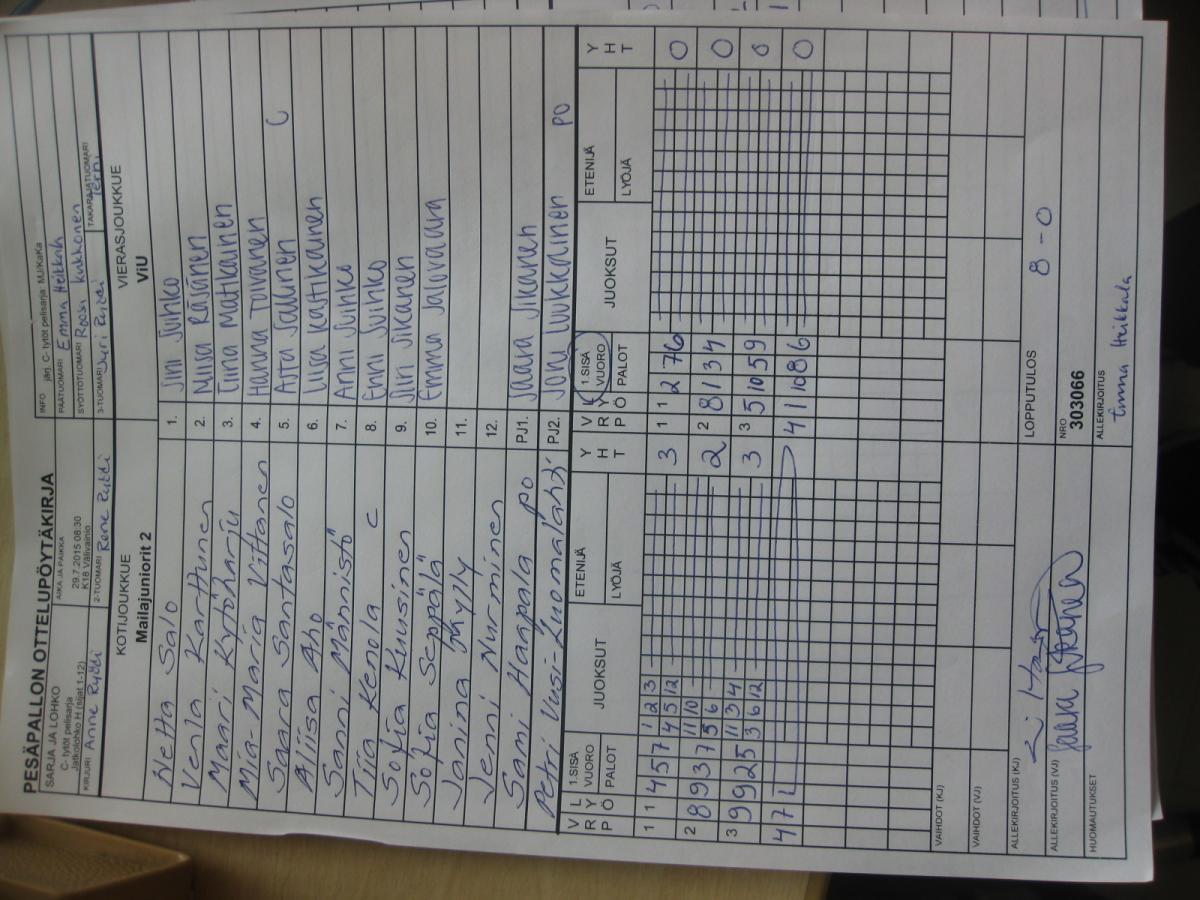 PESÄPALLON OTTELUPÖYTÄKIRJA
SARJA JA LOHKO
C- tytöt pelisarja
Jatkolohko H (sijat 1-12)
AIKA JA PAIKKA
29.7.2015 08:30
K18 Välivainio
INFO järj. C- tytöt pelisarja: MJ/KaKa
PÄÄTUOMARI Emma Heikkala
SYÖTTÖTUOMARI Roosa Kukkonen
KIRJURI Anne Rytti
2-TUOMARI Rene Rytti
3-TUOMARI Jyri Rytti
TAKARAJATUOMARI
KOTIJOUKKUE
Mailajuniorit 2
VIERASJOUKKUE
ViU
Netta Salo 1. Jini Suihko
Venla Karttunen 2. Miisa Räsänen
Maari Kytöharju 3. Tiina Matikainen
Mia-Maria Viitanen 4. Hanna Toivanen
Saara Santasalo 5. Aita Salunen C
Aliisa Aho 6. Liisa Kastikainen
Sanni Männistö 7. Anni Suihko
Tiia Kenola C 8. Enni Suihko
Sofia Knuusinen 9. Siiri Sikanen
Sofia Seppälä 10. Emma Jalovaara
Janina Mylly 11.
Jenni Nurminen 12.
Sami Haapala PO PJ1. Saara Sikanen
Petri Uusi-Kuomalahti PJ2. Joni Luukkainen PO
V R P L Y Ö 1.SISÄ VUORO PALOT JUOKSUT ETENIJÄ LYÖJÄ Y H T V R P L Y Ö 1.SISÄ VUORO PALOT JUOKSUT ETENIJÄ LYÖJÄ Y H T
1 1 4 5 7 1 2 3 3 1 1 2 7 6 0
4 5 12
2 8 9 3 7 11 10 2 2 8 1 3 4 0
5 6
3 9 9 2 5 11 3 4 3 3 5 10 5 9 0
3 6 12
4 7 L 4 1 10 8 6 0
VAIHDOT (KJ)
VAIHDOT (VJ)
ALLEKIRJOITUS (KJ)
LOPPUTULOS 8 - 0
ALLEKIRJOITUS (VJ)
NRO
303066
HUOMAUTUKSET
ALLEKIRJOITUS
Emma Heikkala